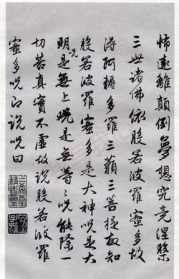 怖遠離顛倒夢想究竟涅槃
三世諸佛依般若波羅蜜多故
得阿耨多羅三藐三菩提故知
般若波羅蜜多是大神咒是大
明咒是無上咒是無等等咒能除一
切苦真實不虛故說般若波羅
蜜多咒即說咒曰